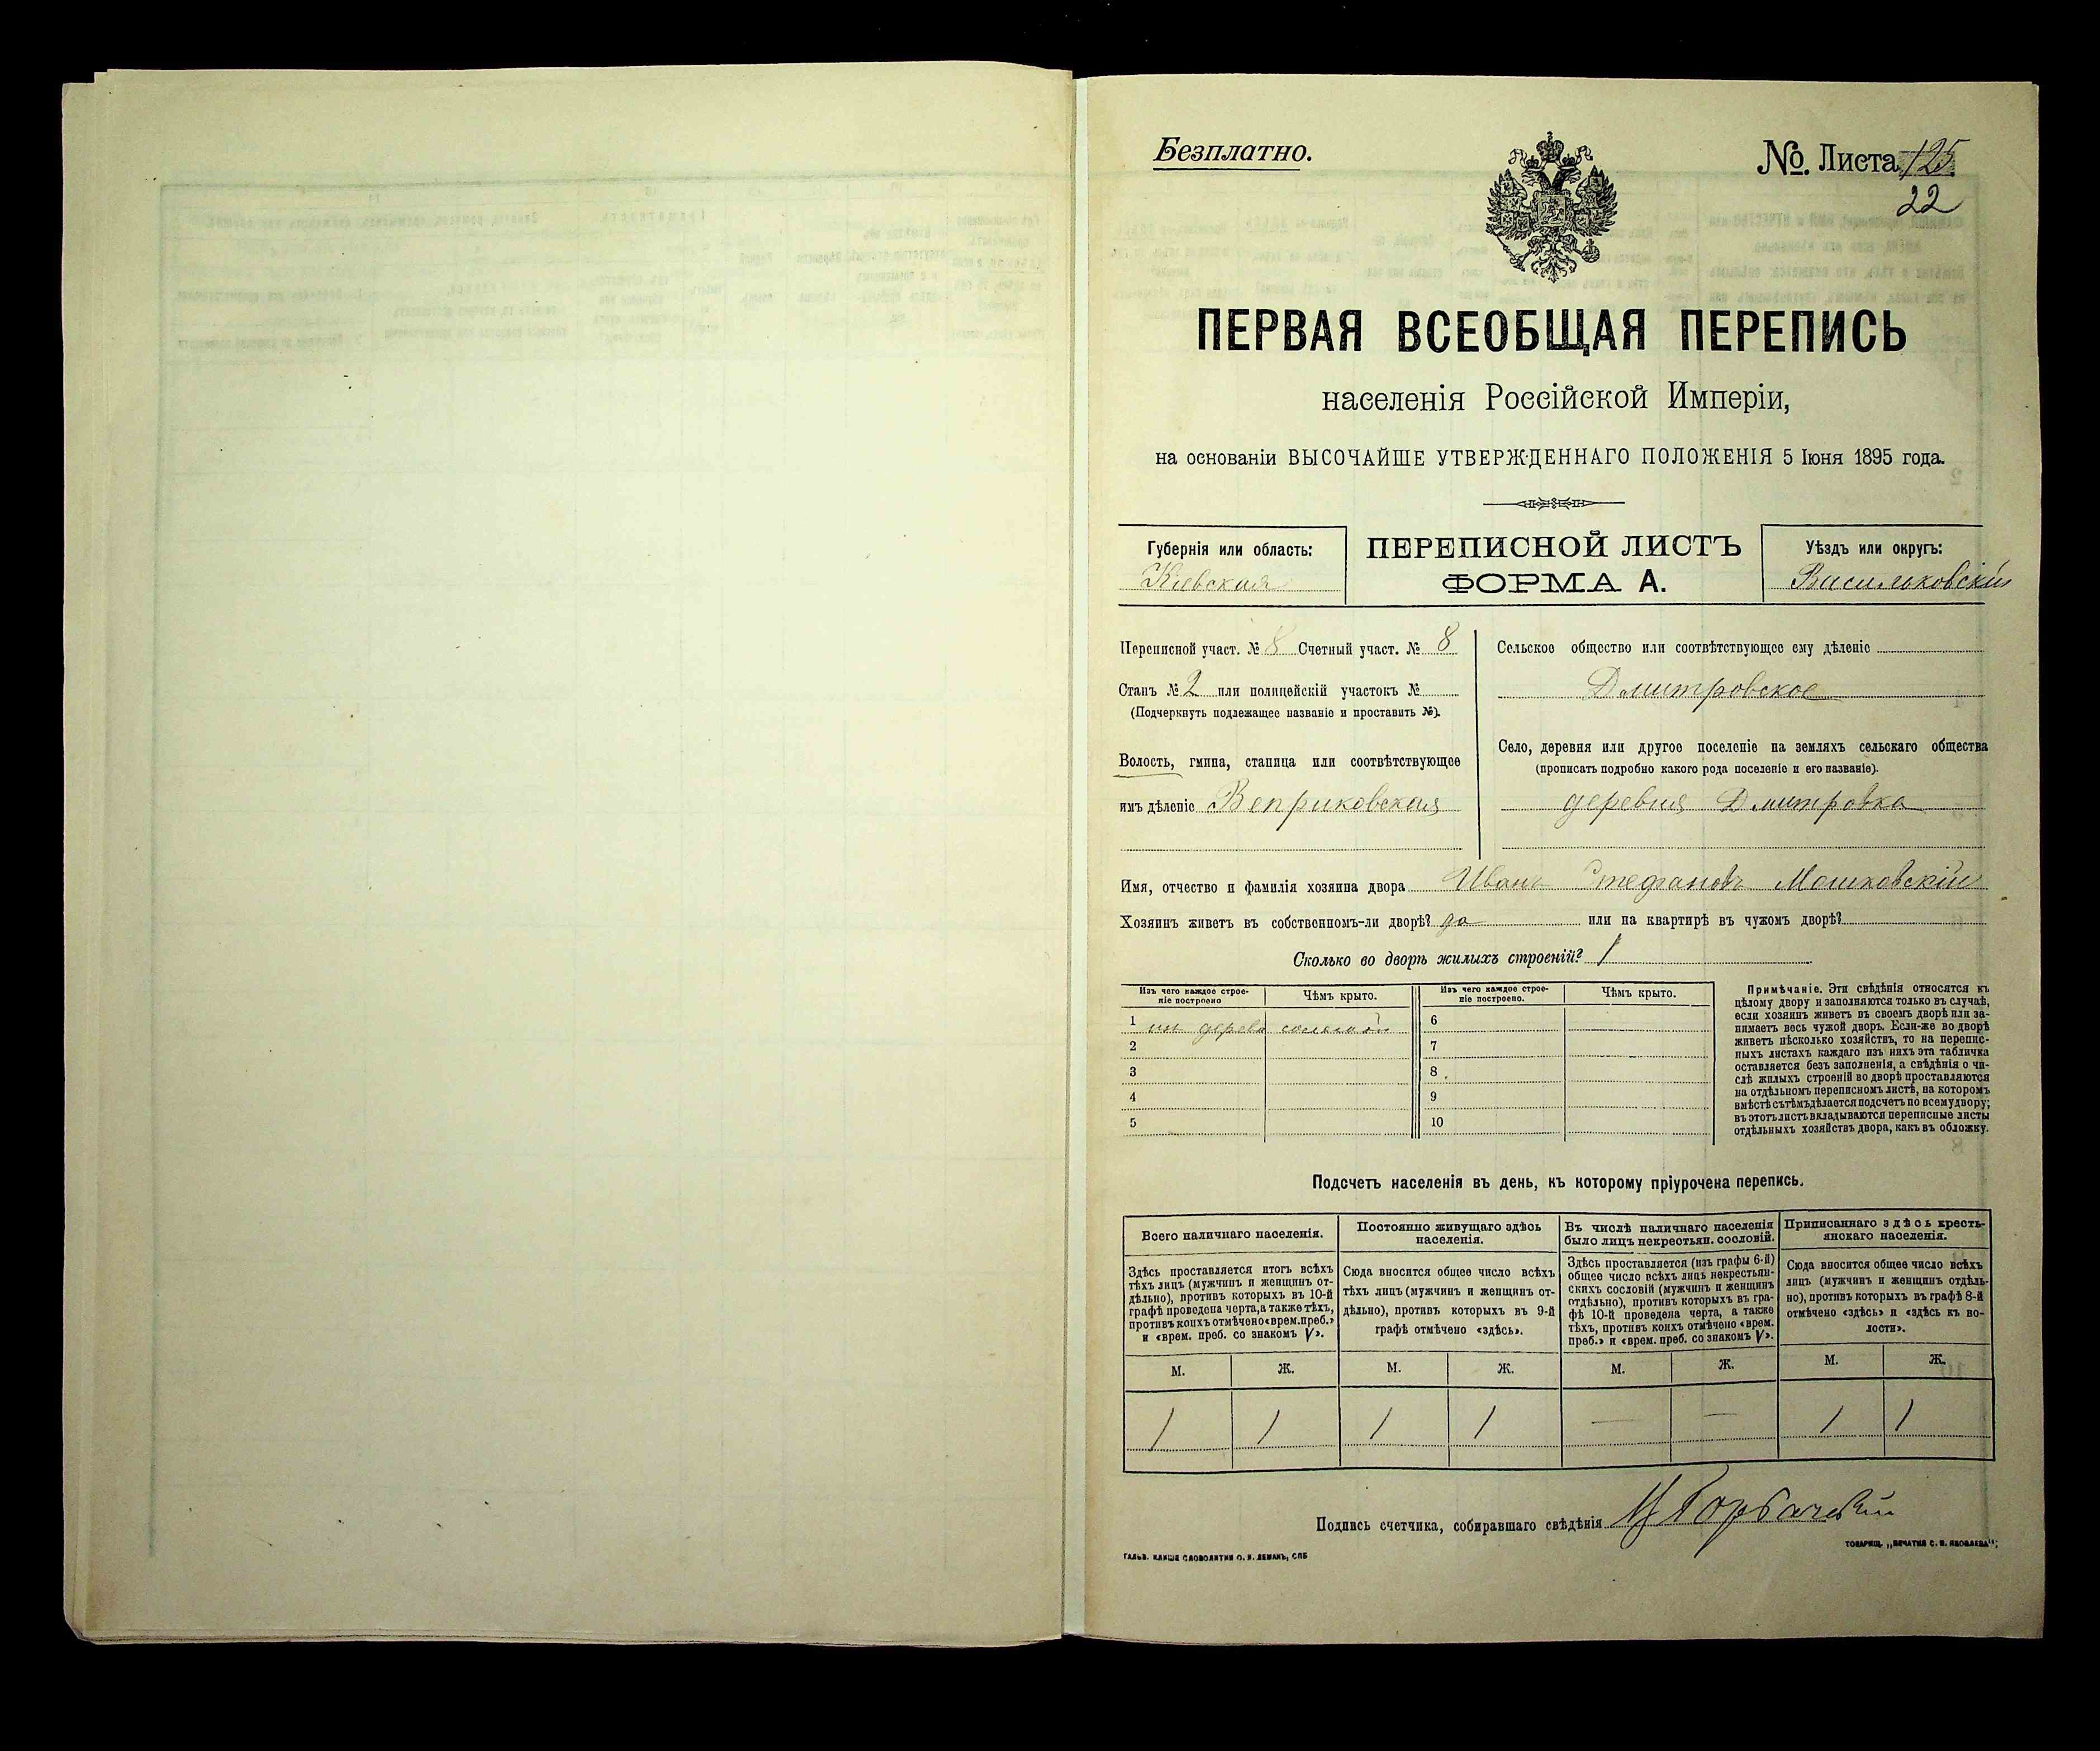 Безплатно.
№. Листа 125
22
ПЕРВАЯ ВСЕОБЩАЯ ПЕРЕПИСЬ
населенія Россійской Имперіи,
на основаніи ВЫСОЧАЙШЕ УТВЕРЖДЕННАГО ПОЛОЖЕНІЯ 5 Іюня 1895 года.
Губернія или область:
Кіевская
ПЕРЕПИСНОЙ ЛИСТЪ
ФОРМА А.
Уѣздъ или округъ:
Васильковскій
Переписной участ. № 8 Счетный участ. № 8
Станъ № 2 или полицейскій участокъ №
(Подчеркнуть подлежащее названіе и проставить №).
Волость, гмина, станица или соотвѣтствующее
имъ дѣленіе Веприковская
Сельское общество или соотвѣтствующее ему дѣленіе
Дмитровское
Село, деревня или другое поселеніе на земляхъ сельскаго общества
(прописать подробно какого рода поселеніе и его названіе).
деревня Дмитровка
Имя, отчество и фамилія хозяина двора Иванъ Стефановъ Мошковскій
Хозяинъ живетъ въ собственномъ-ли дворѣ? да или на квартирѣ въ чужомъ дворѣ?
Сколько во дворѣ жилыхъ строеній? 1
Изъ чего каждое строе-
ніе построено
Чѣмъ крыто.
Изъ чего каждое строе-
ніе построено.
Чѣмъ крыто.
1 изъ дерева соломой
2
3
4
5
6
7
8
9
10
Примѣчаніе. Эти свѣдѣнія относятся къ
цѣлому двору и заполняются только въ случаѣ,
если хозяинъ живетъ въ своемъ дворѣ или за-
нимаетъ весь чужой дворъ. Если-же во дворѣ
живетъ нѣсколько хозяйствъ, то на перепис-
ныхъ листахъ каждаго изъ нихъ эта табличка
оставляется безъ заполненія, а свѣдѣнія о чи-
слѣ жилыхъ строеній во дворѣ проставляются
на отдѣльномъ переписномъ листѣ, на которомъ
вмѣстѣ съ тѣмъ дѣлается подсчетъ по всему двору;
въ этотъ листъ вкладываются переписные листы
отдѣльныхъ хозяйствъ двора, какъ въ обложку.
Подсчетъ населенія въ день, къ которому пріурочена перепись.
Всего наличнаго населенія.
Здѣсь проставляется итогъ всѣхъ
тѣхъ лицъ (мужчинъ и женщинъ от-
дѣльно), противъ которыхъ въ 10-й
графѣ проведена черта, а также тѣхъ,
противъ коихъ отмѣчено «врем. преб.»
и «врем. преб. со знакомъ V».
Постоянно живущаго здѣсь
населенія.
Сюда вносится общее число всѣхъ
тѣхъ лицъ (мужчинъ и женщинъ от-
дѣльно), противъ которыхъ въ 9-й
графѣ отмѣчено «здѣсь».
Въ числѣ наличнаго населенія
было лицъ некрестьян. сословій.
Здѣсь проставляется (изъ графы 6-й)
общее число всѣхъ лицъ некрестьян-
скихъ сословій (мужчинъ и женщинъ
отдѣльно), противъ которыхъ въ гра-
фѣ 10-й проведена черта, а также
тѣхъ, противъ коихъ отмѣчено «врем.
преб.» и «врем. преб. со знакомъ V».
Приписаннаго здѣсь кресть-
янскаго населенія.
Сюда вносится общее число всѣхъ
лицъ (мужчинъ и женщинъ отдѣль-
но), противъ которыхъ въ графѣ 8-й
отмѣчено «здѣсь» и «здѣсь къ во-
лости».
М. Ж. М. Ж. М. Ж. М. Ж.
1 1 1 1 — — 1 1
Подпись счетчика, собиравшаго свѣдѣнія
ГАЛЬВ. КЛИШЕ СЛОВОЛИТНИ О. И. ЛЕМАНЪ, СПБ
ТОВАРИЩ. „ПЕЧАТНЯ С. П. ЯКОВЛЕВА“;